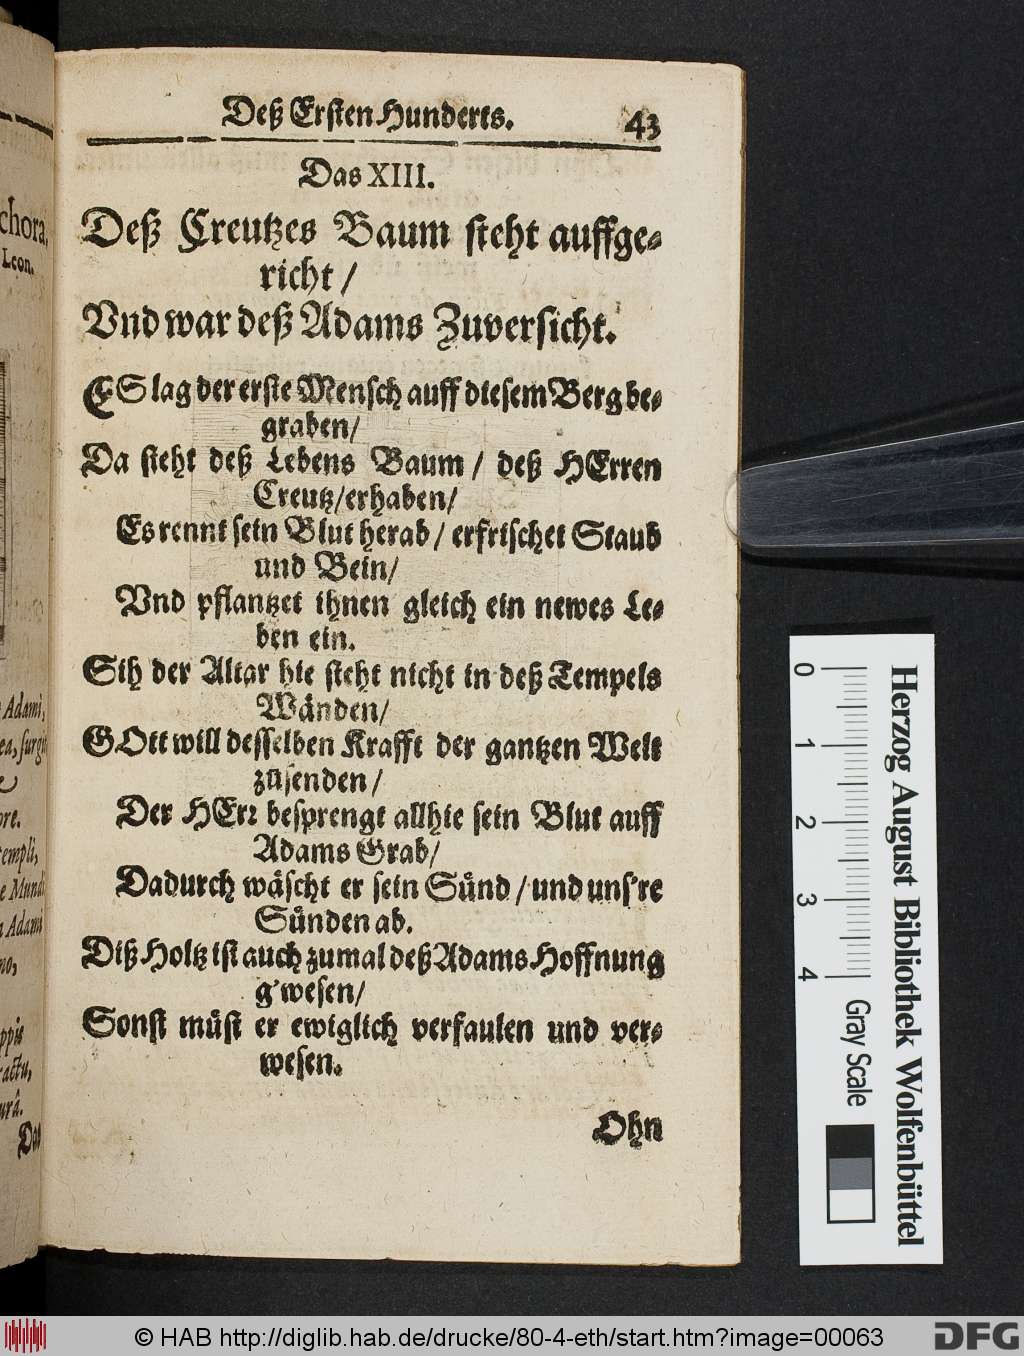 Deß Ersten Hunderts. 43
Das XIII.
Deß Creutzes Baum steht auffge-
richt /
Vnd war deß Adams Zuversicht.
ES lag der erste Mensch auff diesem Berg be-
graben /
Da steht deß Lebens Baum / deß HErren
Creutz / erhaben /
Es rennt sein Blut herab / erfrischet Staub
und Bein /
Vnd pflantzet ihnen gleich ein newes Le-
ben ein.
Sih der Altar hie steht nicht in deß Tempels
Wänden /
GOtt will desselben Krafft der gantzen Welt
zusenden /
Der HErr besprengt allhie sein Blut auff
Adams Grab /
Dadurch wäscht er sein Sünd / und uns're
Sünden ab.
Diß Holtz ist auch zumal deß Adams Hoffnung
g'wesen /
Sonst müst er ewiglich verfaulen und ver-
wesen.
Ohn
chora,
Leon.
Adami,
ea, surgit
ore.
templi,
e Mundi
Adami
no,
ppis
ractu,
urâ.
Das
0 1 2 3 4
Herzog August Bibliothek Wolfenbüttel
Gray Scale
© HAB http://diglib.hab.de/drucke/80-4-eth/start.htm?image=00063
DFG